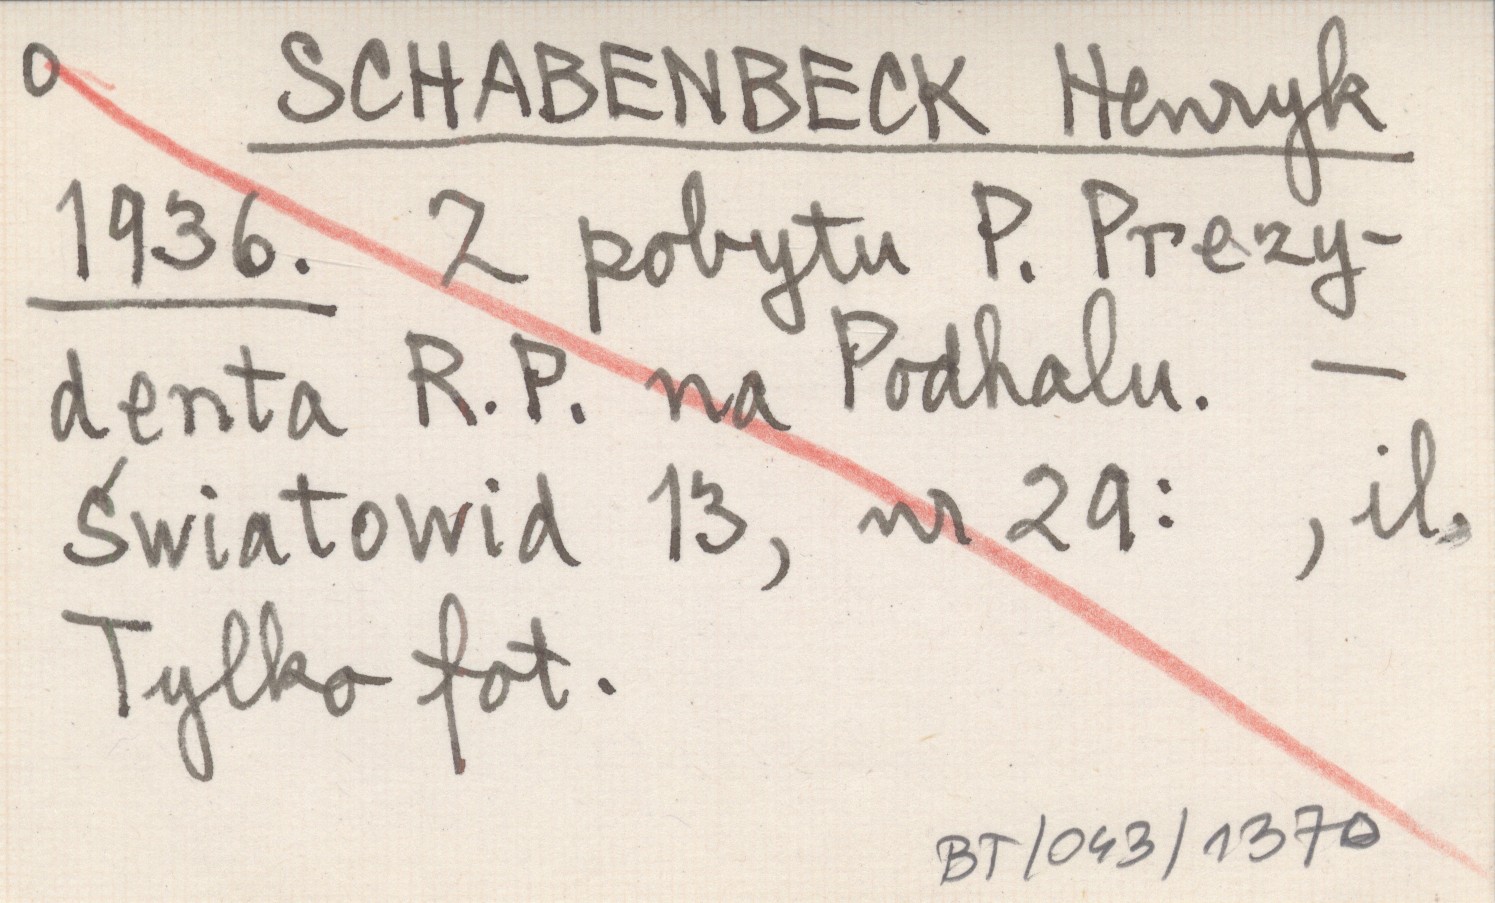 o SCHABENBECK Henryk
1936. Z pobytu P. Prezy-
denta R.P. na Podhalu. —
Światowid 13, nr 29: , il.
Tylko fot.
BT/043/1370